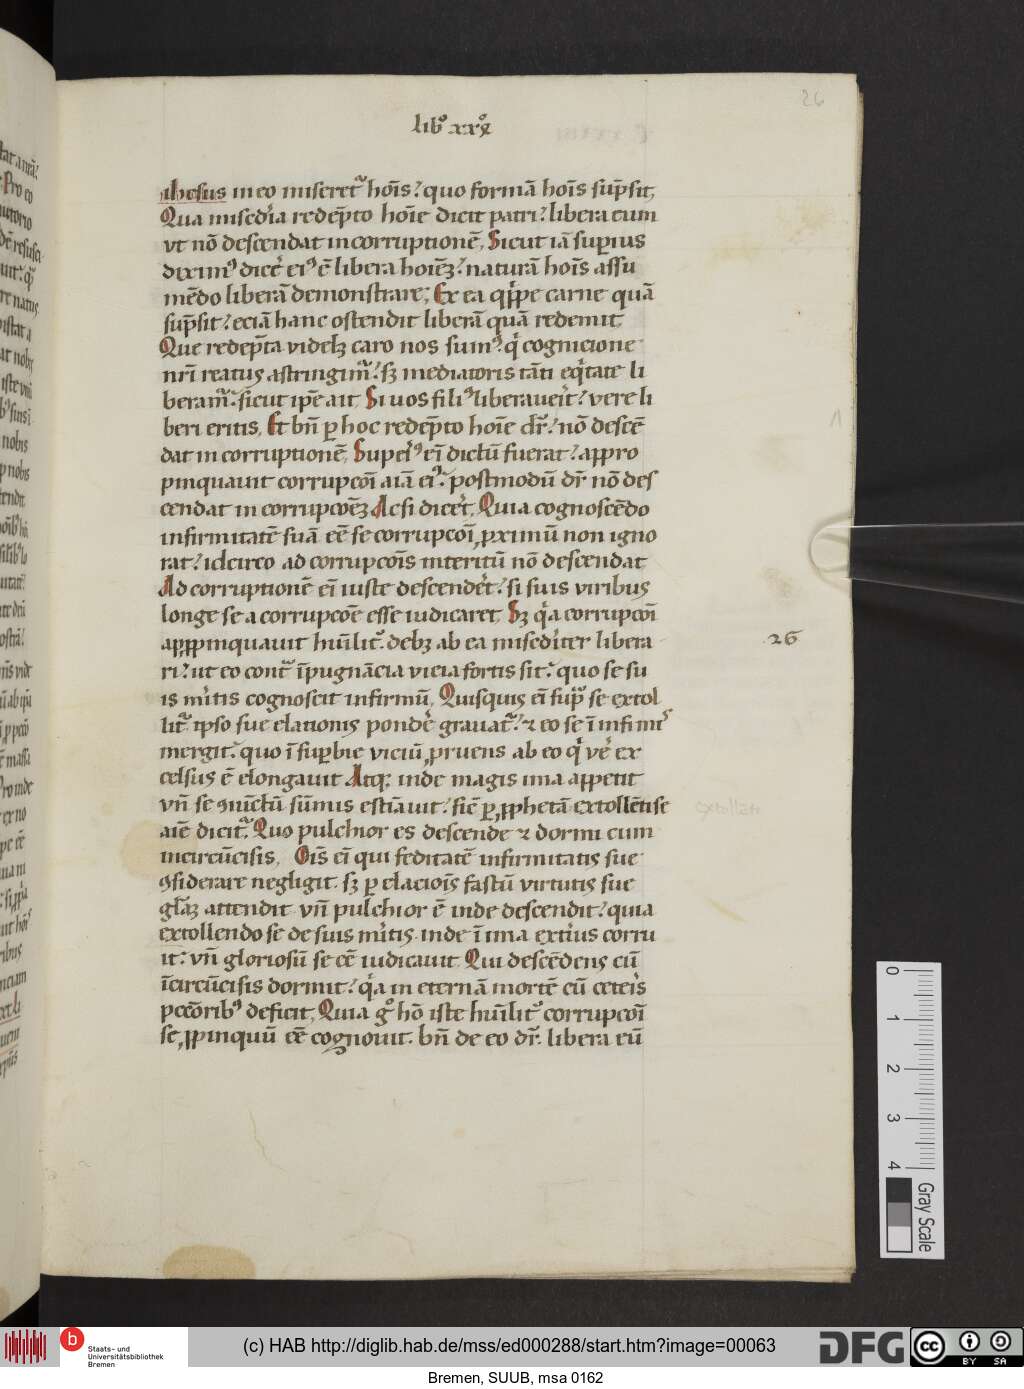 26
lib⁹ xx⁹
ihesus in eo miseret᷑ hoı̄s? quo formā hoı̄s sup̄sit,
Qua misedı̓a redēpto hoı̄e dicit patri? libera eum
vt nō descendat in corruptionē, Sicut iā sup̱ius
diximꝰ dice̓ eiꝰ ē libera hoı̄eꝫ? naturā hoı̄s assu
mēdo liberā demonstrare; Ex ea qͥppe carne quā
sup̄sit? eciā hanc ostendit liberā quā redemit,
Que redēpta videlꝫ caro nos sumꝰ. qͥ cognicione
nr̄i reatus astringim᷑? sꝫ mediatoris tāti eqͥtate li
beram᷑. sicut ip̄e ait, Si uos filiꝰ liberaueı̓t? vere li
beri eritis, Et bn̄ ꝑ hoc redēpto hoı̄e dr̄? nō descē
dat in corruptionē, Supeı̓ꝰ eī dictū fuerat? appro
pinquauit corrupcōi aı̄a eiꝰ. postmodū dr̄ nō des
cendat in corrupcōeꝫ Acsi dice̓t, Quia cognoscēdo
infirmitatē suā eē se corrupcōı̄ ꝓximū non igno
rat? idcirco ad corrupcōis interitū nō descendat
Ad corruptionē eī iuste descende̓t? si suis viribus
longe se a corrupcōe esse iudicaret, Sꝫ qͥa corrupcōı̄
apꝓpinquauit hūilit᷑. debꝫ ab ea misedı̓ter libera
26
ri? ut eo cont᷑ īpugnācia vicia fortis sit? quo se su
is mı̓tis cognoscit infirmū, Quisquis eī sup᷑ se extol
lit᷑. ipso sue elationis ponde̓ grauat᷑? ⁊ eo se ī infimı̓s
mergit. quo ī sup̱bie viciū ꝓruens ab eo qͥ ve̓ ex
celsus ē elongauit Atqꝫ inde magis ima appetit
vn̄ se ꝯiūctū sūmis estīauit? sic̄ ꝑ ꝓphetā extollētise
aı̄e dicit᷑. Quo pulchior es descende ⁊ dormi cum
incircūcisis, Oı̄s eī qui feditatē infirmitatis sue
ꝯsiderare negligit. sꝫ ꝑ elacioı̄s fastū virtutis sue
gl̄aꝫ attendit vn̄ pulchior ē inde descendit? quia
extollendo se de suis mı̓tis inde ī ima extı̓us corru
it? vn̄ gloriosū se eē iudicauit Qui descēdens cū
īcircūcisis dormit? qͥa in eternā mortē cū ceteı̓s
pccōribꝰ deficit, Quia g° hō iste hūilit᷑ corrupcōı̄
se ꝓpinquū eē cognouit. bn̄ de eo dr̄. libera eū
0 1 2 3 4 Gray Scale
b Staats- und
Universitätsbibliothek
Bremen
(c) HAB http://diglib.hab.de/mss/ed000288/start.htm?image=00063
DFG
cc BY SA
Bremen, SUUB, msa 0162